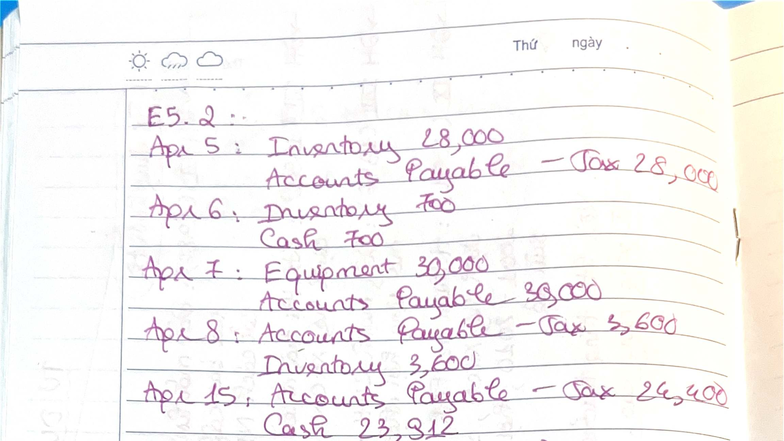 Thứ ngày .
E5.2 :
Apr 5 : Inventory 28,000
Accounts Payable - Jax 28,000
Apr 6 : Inventory 700
Cash 700
Apr 7 : Equipment 30,000
Accounts Payable 30,000
Apr 8 : Accounts Payable - Jax 3,600
Inventory 3,600
Apr 15 : Accounts Payable - Jax 24,400
Cash 23,912